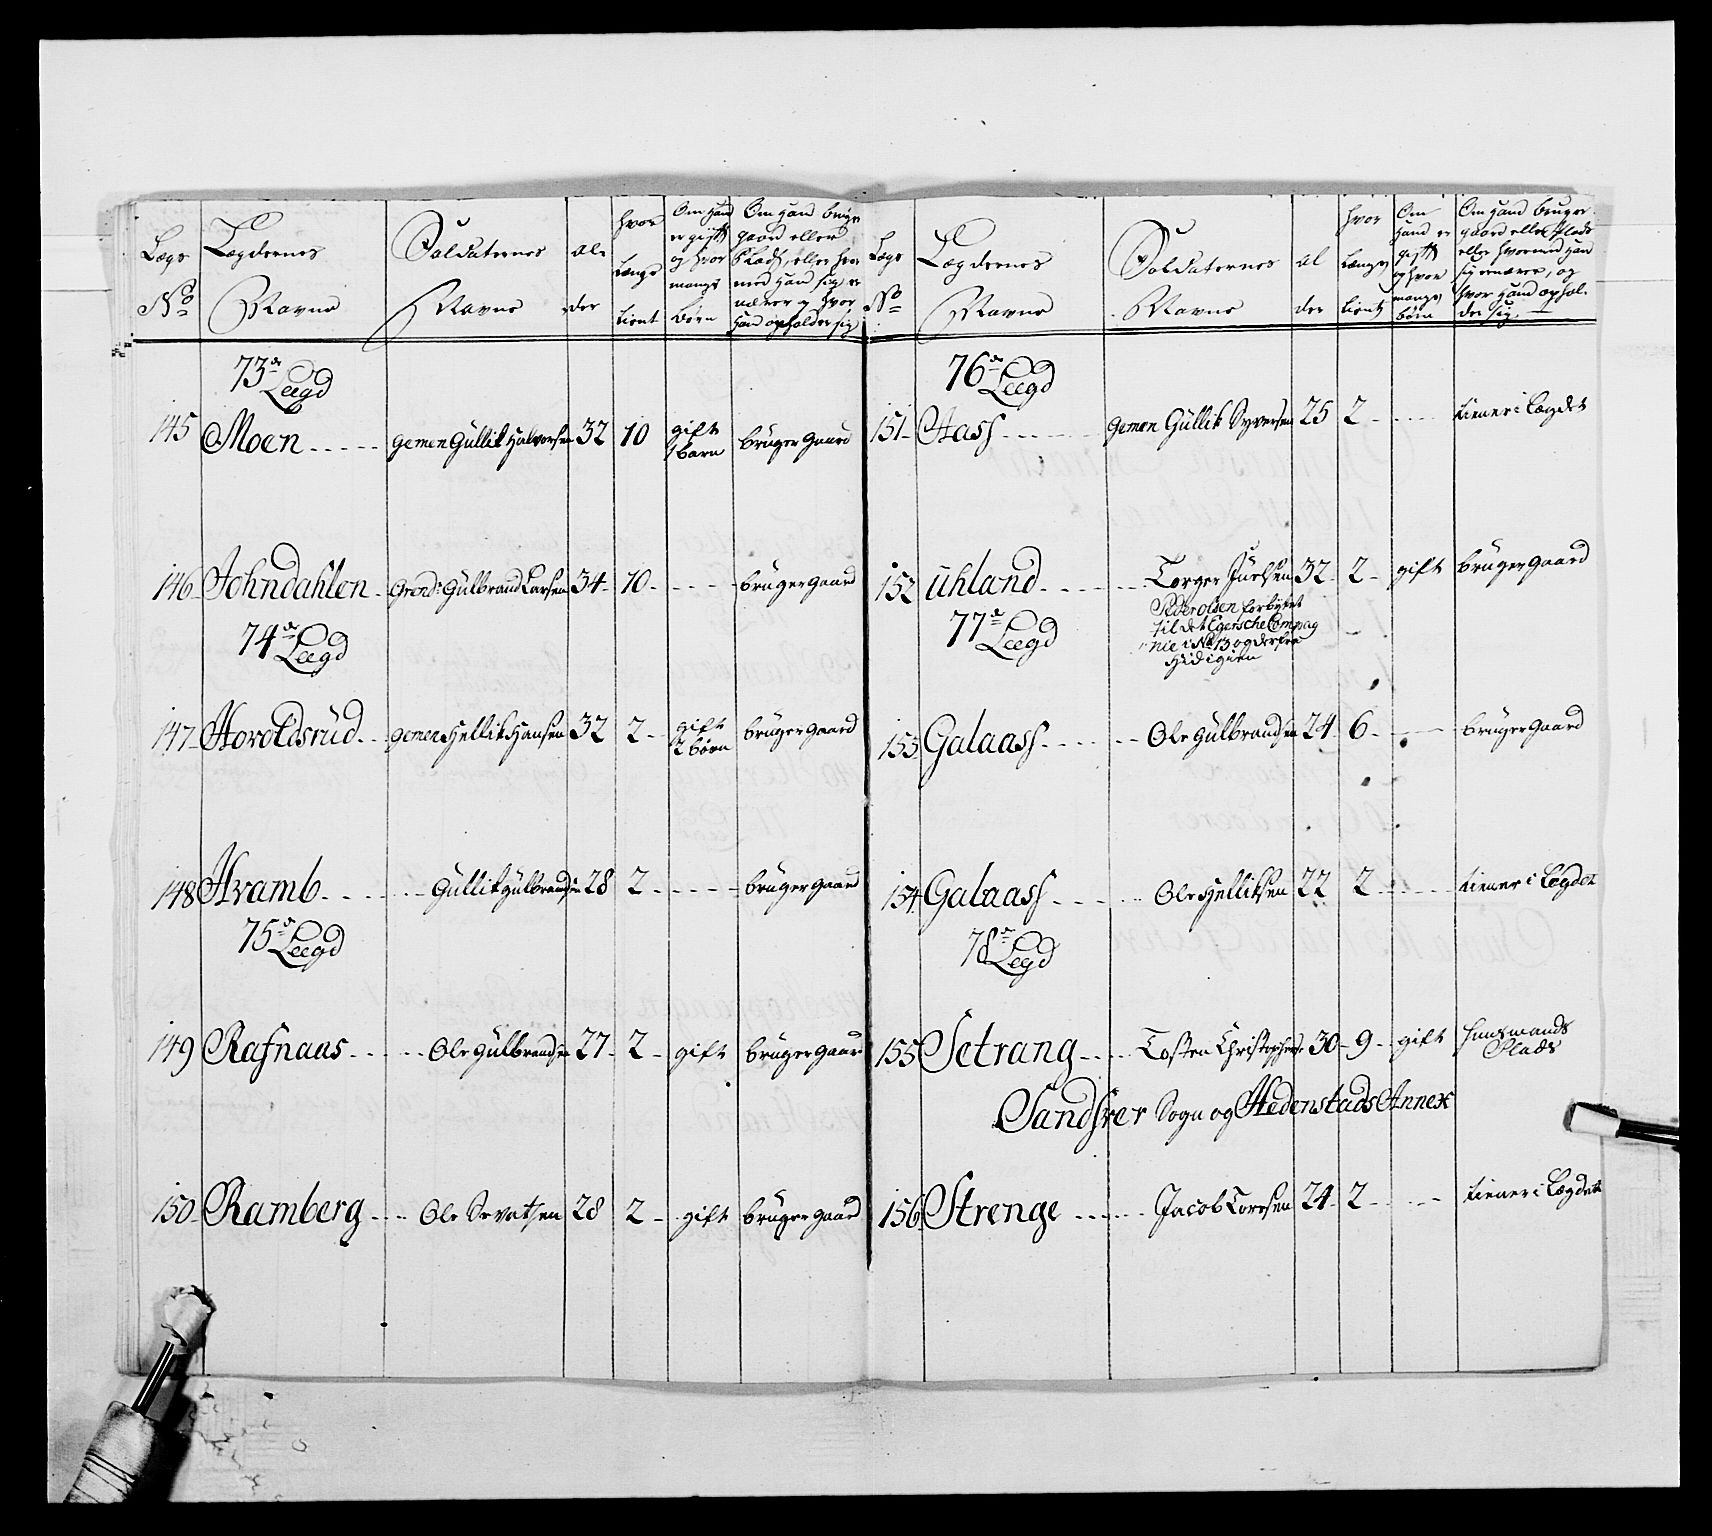 Lægs No
Lægdernes Navne
Soldaternes Navne
Alder
hvor Længe tient
Om hand er gift og hvor mange Børn
Om hand bruger gaard eller Plads, eller hvormed hand sig ernærer og hvor hand opholder sig
73de Leegd
145 Moen gemen Gullik Halvorsen 32 10 gift 1 barn bruger gaard
146 Johndahlen Grend: Gulbrand Larsen 34 10 bruger gaard
74de Leegd
147 Horoldsrud gemen Hellik Hansen 32 2 gift 2 børn bruger gaard
148 Hvamb Gullik Gulbrandsen 28 2 bruger gaard
75de Leegd
149 Rafnaas Ole Gulbrandsen 27 2 gift bruger gaard
150 Ramberg Ole 28 2 gift bruger gaard
Lægs No
Lægdernes Navne
Soldaternes Navne
Alder
hvor Længe tient
Om hand er gift og hvor mange børn
Om hand bruger gaard eller Plads eller hvormed hand sig ernærer, og hvor hand opholder sig.
76de Leegd
151 Aass gemen Gullik Syversen 25 2 tiener i Lægdet
152 uhland Torger Juelsen 32 2 gift bruger gaard
Peder Olsen forbyttet
til det Egersche Compag
nie i No 13 og derfra
hid igien
77de Leegd
153 Galaass Ole Gulbrandsen 24 6 bruger gaard
154 Galaass Ole Helliksen 22 2 tiener i Lægdet
78de Leegd
155 Setrang Tosten Christophers: 30 9 gift Huusmands Plads
Sandsver Sogn og Hedenstads Annex
156 Strenge Jacob Toresen 24 2 tiener i Lægdet